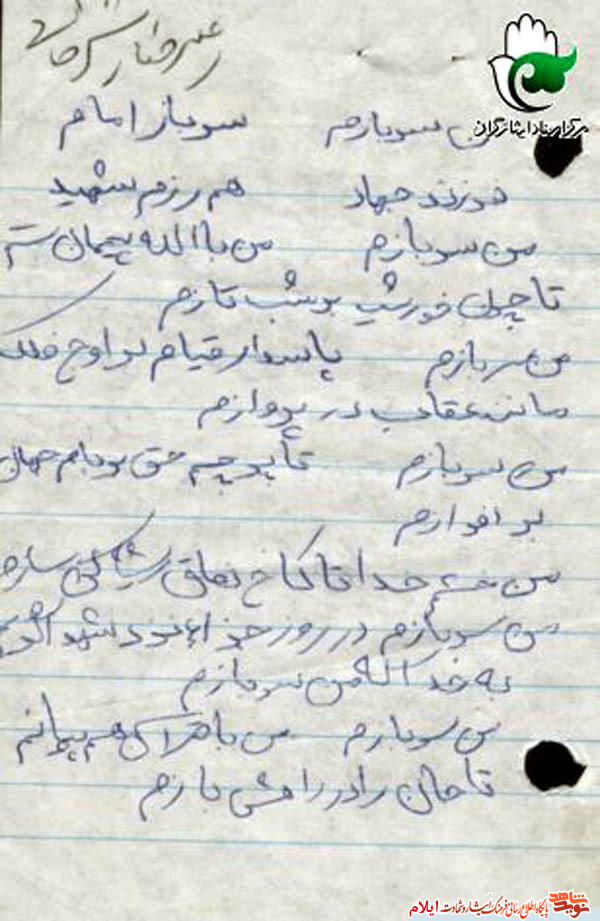 مرکز اسناد ایثارگران
من سربازم سرباز امام
فرزند جهاد هم رزم شهید
من سربازم من با الله پیمان بستم
تا چون خورشید بر شب تازم
من سربازم پاسدار قیام بر اوج فلک
مانند عقاب در پروازم
من سربازم تا پرچم حق بر بام جهان
بر افرازم
من خدا تا کاخ نفاق
من سربازم در روز شهدا
به خدا که من سربازم
من سربازم من با هم پیمانم
تا جان را در راهش بازم
نوید شاهد
پایگاه اطلاع رسانی فرهنگ ایثار و شهادت ایلام